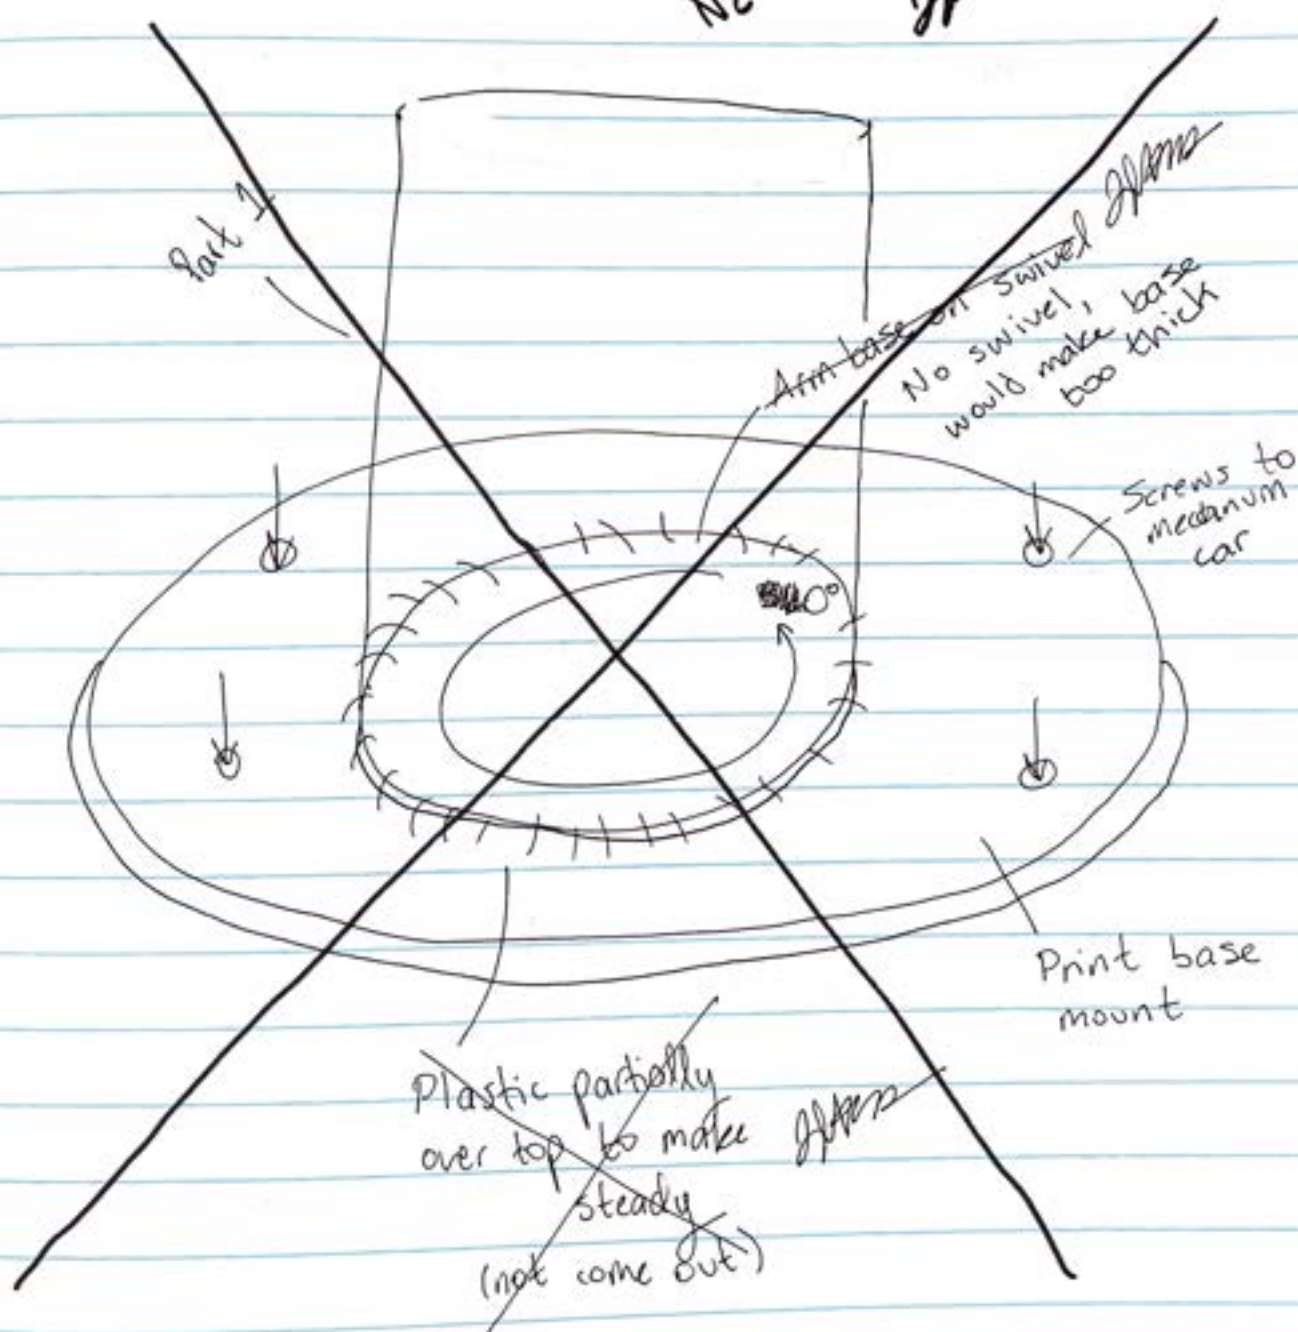 Part 1
Arm base on swivel
No swivel,
would make base
too thick
Screws to
mecanum
car
0°
Print base
mount
Plastic partially
over top to make
steady
(not come out)